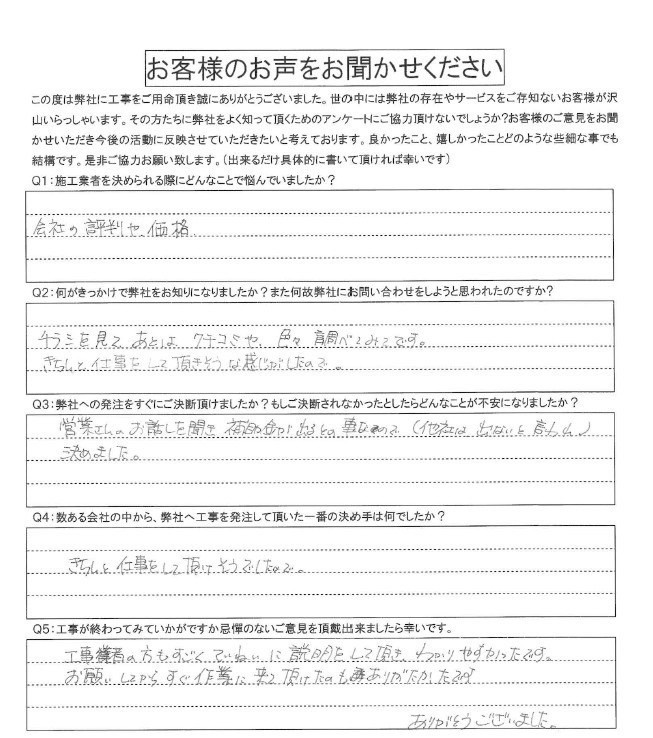 お客様のお声をお聞かせください
この度は弊社に工事をご用命頂き誠にありがとうございました。世の中には弊社の存在やサービスをご存知ないお客様が沢
山いらっしゃいます。その方たちに弊社をよく知って頂くためのアンケートにご協力頂けないでしょうか?お客様のご意見をお聞
かせいただき今後の活動に反映させていただきたいと考えております。良かったこと、嬉しかったことどのような些細な事でも
結構です。是非ご協力お願い致します。(出来るだけ具体的に書いて頂ければ幸いです)
Q1:施工業者を決められる際にどんなことで悩んでいましたか?
会社の評判や、価格
Q2:何がきっかけで弊社をお知りになりましたか?また何故弊社にお問い合わせをしようと思われたのですか?
チラシを見て、あとは、クチコミや、色々調べてみてです。
きちんと仕事をして頂きそうな感じがしたので。
Q3:弊社への発注をすぐにご決断頂けましたか?もしご決断されなかったとしたらどんなことが不安になりましたか?
営業さんのお話しを聞き、補助金が出るとの事なので(他社は出ないと言われ)
決めました。
Q4:数ある会社の中から、弊社へ工事を発注して頂いた一番の決め手は何でしたか?
きちんと仕事をして頂けそうでしたので。
Q5:工事が終わってみていかがですか忌憚のないご意見を頂戴出来ましたら幸いです。
工事業者の方もすごくていねいに説明をして頂き、わかりやすかったです。
お願いしてからすぐ作業に来て頂けたのもありがたかったです
ありがとうございました。